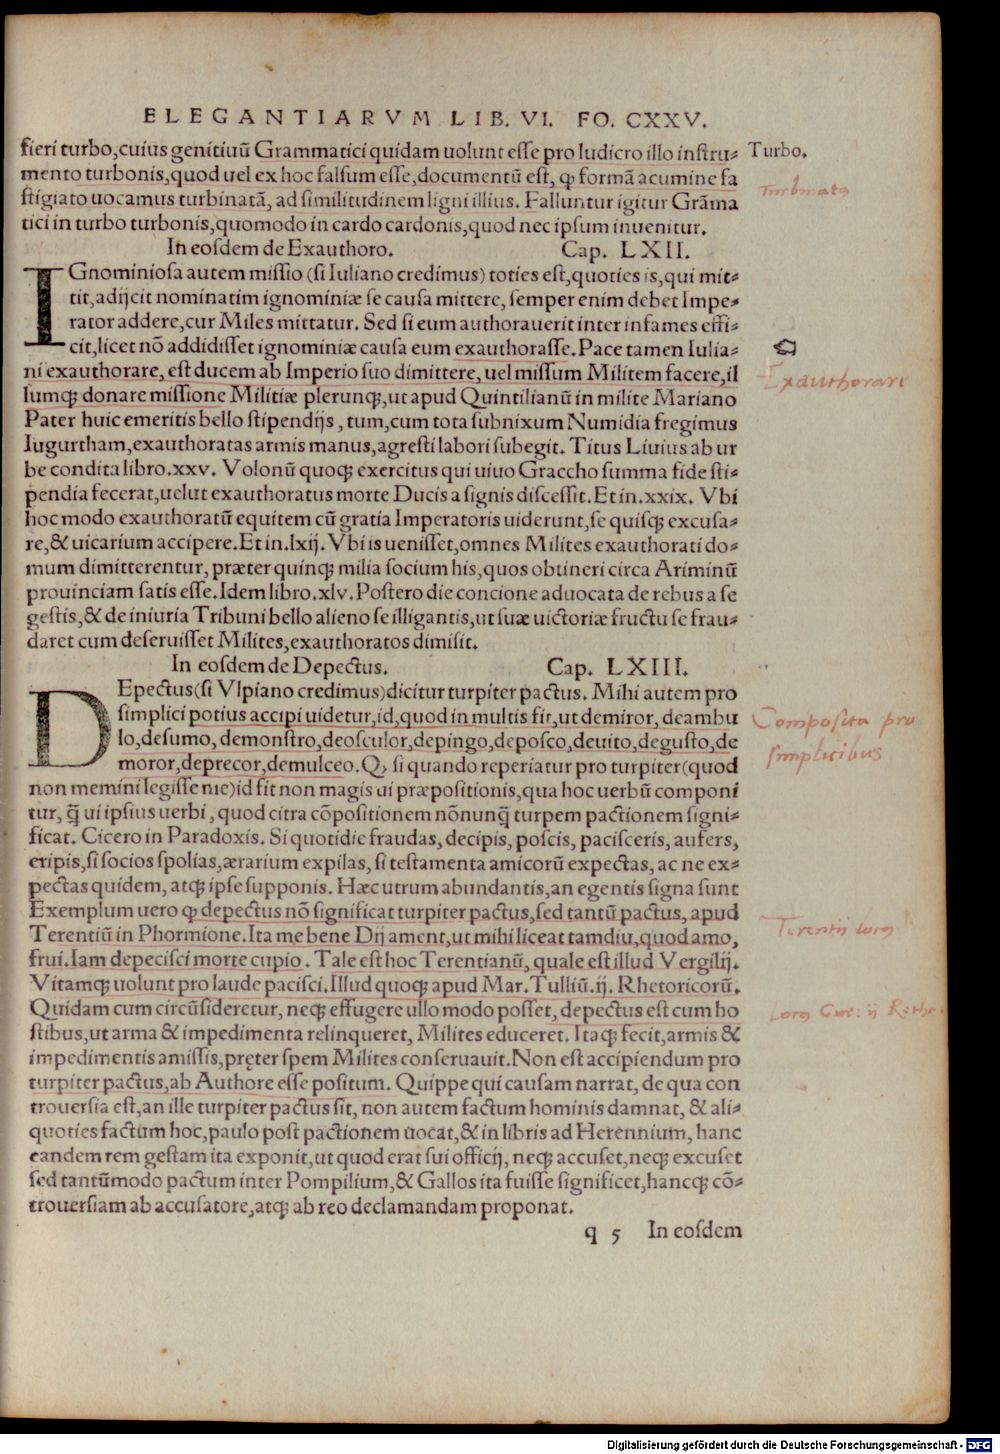 ELEGANTIARVM LIB. VI. FO. CXXV.
fieri turbo,cuius genitiuũ Grammatici quidam uolunt esse pro ludicro illo instru⸗ Turbo.
mento turbonis,quod uel ex hoc falsum esse,documentũ est, ꝙ formã acumine fa
stigiato uocamus turbinatã, ad similitudinem ligni illius. Falluntur igitur Grãma
tici in turbo turbonis,quomodo in cardo cardonis,quod nec ipsum inuenitur.
In eosdem de Exauthoro. Cap. LXII.
IGnominiosa autem missio (si Iuliano credimus) toties est,quoties is,qui mit⸗
tit,adijcit nominatim ignominiæ se causa mittere, semper enim debet Impe⸗
rator addere,cur Miles mittatur. Sed si eum authorauerit inter infames effi⸗
cit,licet nõ addidisset ignominiæ causa eum exauthorasse.Pace tamen Iulia⸗
ni exauthorare, est ducem ab Imperio suo dimittere, uel missum Militem facere,il
Exauthorare
lumqꝫ donare missione Militiæ plerunqꝫ,ut apud Quintilianũ in milite Mariano
Pater huic emeritis bello stipendijs, tum,cum tota subnixum Numidia fregimus
Iugurtham,exauthoratas armis manus,agresti labori subegit. Titus Liuius ab ur
be condita libro.xxv. Volonũ quoqꝫ exercitus qui uiuo Graccho summa fide sti⸗
pendia fecerat,uelut exauthoratus morte Ducis a signis discessit. Et in.xxix. Vbi
hoc modo exauthoratũ equitem cũ gratia Imperatoris uiderunt,se quisqꝫ excusa⸗
re,& uicarium accipere.Et in.lxij. Vbi is uenisset,omnes Milites exauthorati do⸗
mum dimitterentur, præter quinqꝫ milia socium his,quos obtineri circa Ariminũ
prouinciam satis esse. Idem libro.xlv. Postero die concione aduocata de rebus a se
gestis,& de iniuria Tribuni bello alieno se illigantis,ut suæ uictoriæ fructu se frau⸗
daret cum deseruisset Milites,exauthoratos dimisit.
In eosdem de Depectus. Cap. LXIII.
DEpectus(si Vlpiano credimus)dicitur turpiter pactus. Mihi autem pro
simplici potius accipi uidetur,id,quod in multis fit,ut demiror, deambu
Composita pro
lo,desumo, demonstro,deosculor,depingo,deposco,deuito,degusto,de
simplicibus
moror,deprecor,demulceo. Qꝫ si quando reperiatur pro turpiter(quod
non memini legisse me)id fit non magis ui præpositionis,qua hoc uerbũ componi
tur, q̃ ui ipsius uerbi, quod citra cõpositionem nõnunq̃ turpem pactionem signi⸗
ficat. Cicero in Paradoxis. Si quotidie fraudas, decipis, poscis, pacisceris, aufers,
eripis,si socios spolias,ærarium expilas, si testamenta amicorũ expectas, ac ne ex⸗
pectas quidem, atqꝫ ipse supponis. Hæc utrum abundantis,an egentis signa sunt
Exemplum uero ꝙ depectus nõ significat turpiter pactus,sed tantũ pactus, apud
Terentiũ in Phormione.Ita me bene Dij ament,ut mihi liceat tamdiu,quod amo,
Terentii locus
frui.Iam depecisci morte cupio. Tale est hoc Terentianũ, quale est illud Vergilij.
Vitamqꝫ uolunt pro laude pacisci.Illud quoqꝫ apud Mar. Tulliũ.ij. Rhetoricorũ.
Quidam cum circũsideretur, neqꝫ effugere ullo modo posset, depectus est cum ho
Locus Cice: ij Retho.
stibus,ut arma & impedimenta relinqueret, Milites educeret. Itaqꝫ fecit,armis &
impedimentis amissis,pręter spem Milites conseruauit.Non est accipiendum pro
turpiter pactus,ab Authore esse positum. Quippe qui causam narrat, de qua con
trouersia est,an ille turpiter pactus sit, non autem factum hominis damnat, & ali⸗
quoties factum hoc,paulo post pactionem uocat,& in libris ad Herennium, hanc
eandem rem gestam ita exponit,ut quod erat sui officij, neqꝫ accuset,neqꝫ excuset
sed tantũmodo pactum inter Pompilium,& Gallos ita fuisse significet,hancqꝫ cõ⸗
trouersiam ab accusatore,atqꝫ ab reo declamandam proponat.
q 5 In eosdem
Digitalisierung gefördert durch die Deutsche Forschungsgemeinschaft - DFG